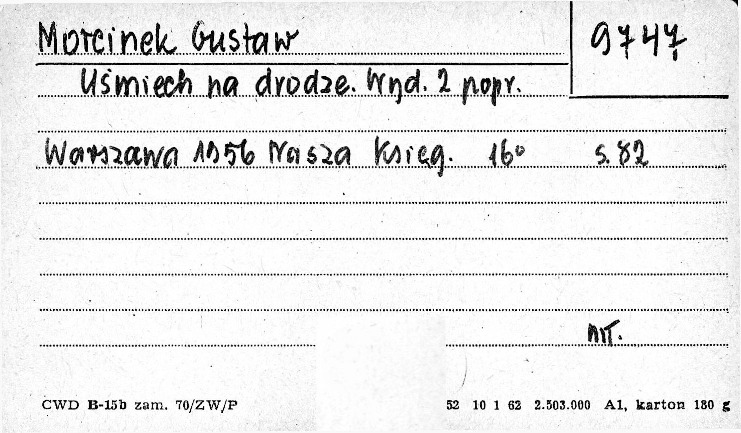 Morcinek Gustaw 9747
Uśmiech na drodze. Wyd. 2 popr.
Warszawa 1956 Nasza Księg. 16° s. 82
nr.
CWD B-15b zam. 70/ZW/P 52 10 1 62 2.503.000 A1, karton 180 g